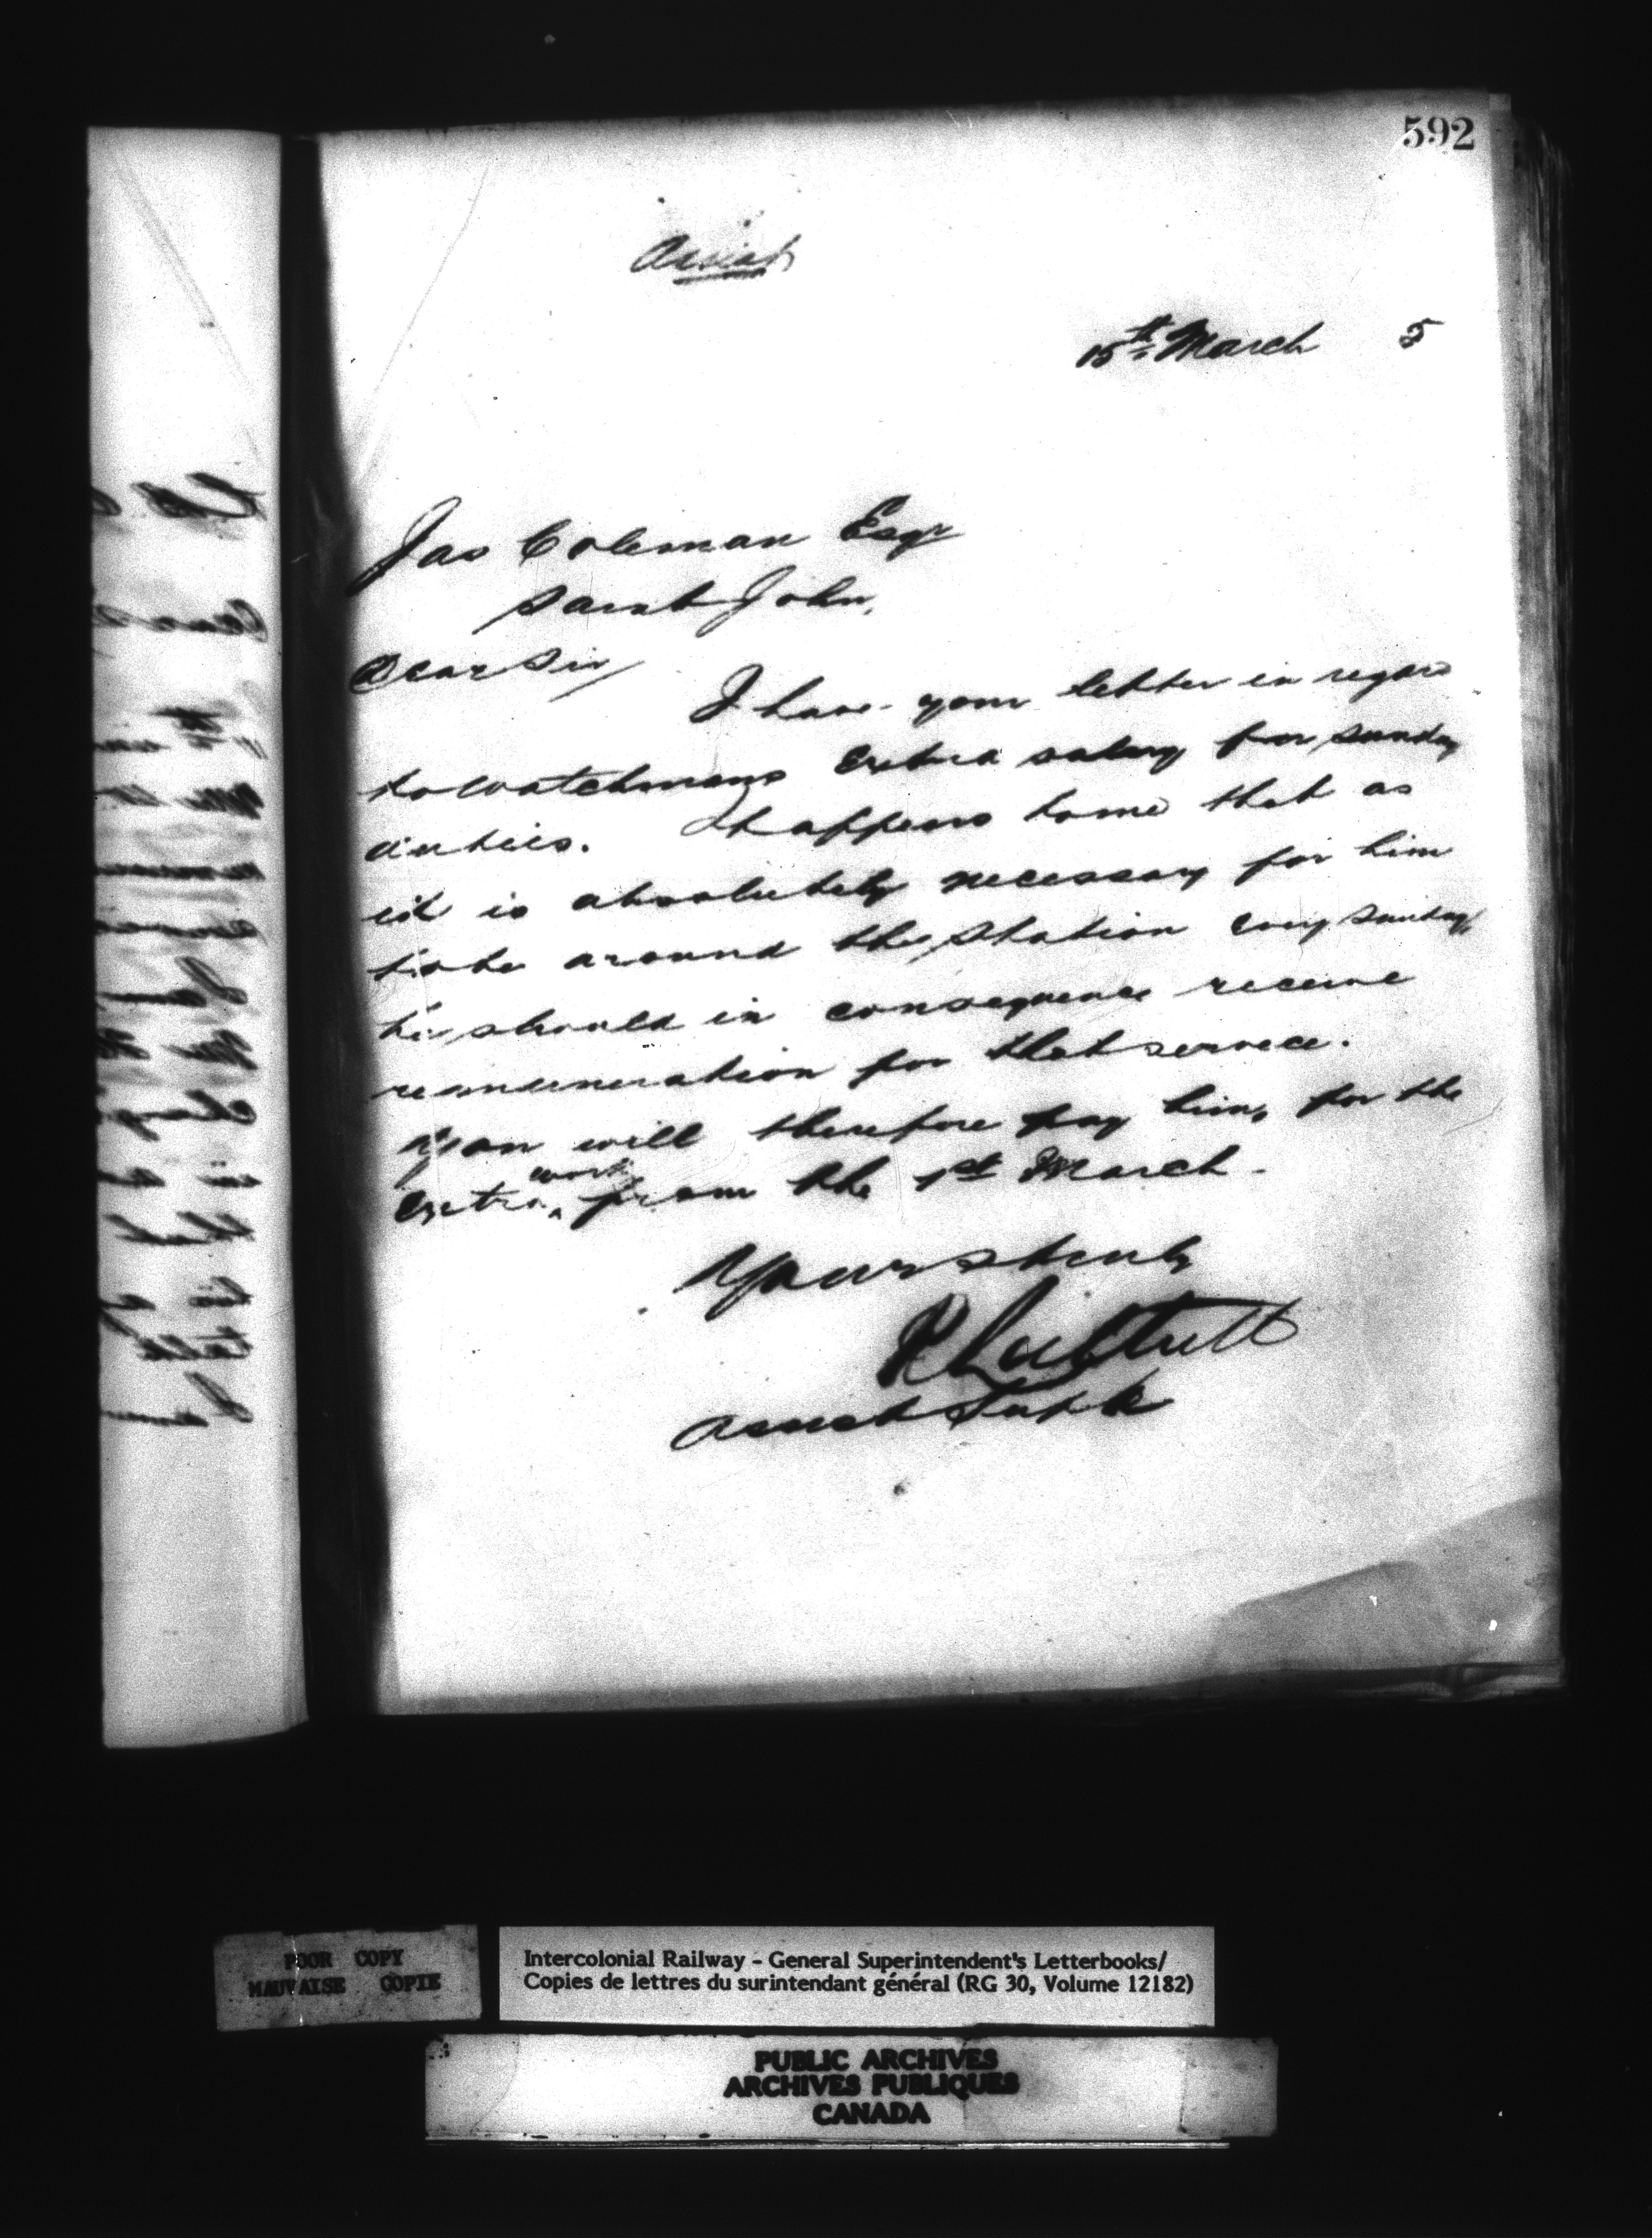 592
Assist
15th March 5
Jas Coleman Esqr
Saint John,
Dear Sir
I have your letter in regard
to watchmans extra salary for Sunday
duties. It happens to me that as
it is absolutely necessary for him
to be around the station every Sunday,
he should in consequence receive
remuneration for that service.
You will therefore pay him for the
extra work from the 1st March.
Yours truly
R Luttrell
Assist Supt
POOR COPY
MAUVAISE COPIE
Intercolonial Railway - General Superintendent's Letterbooks/
Copies de lettres du surintendant général (RG 30, Volume 12182)
PUBLIC ARCHIVES
ARCHIVES PUBLIQUES
CANADA